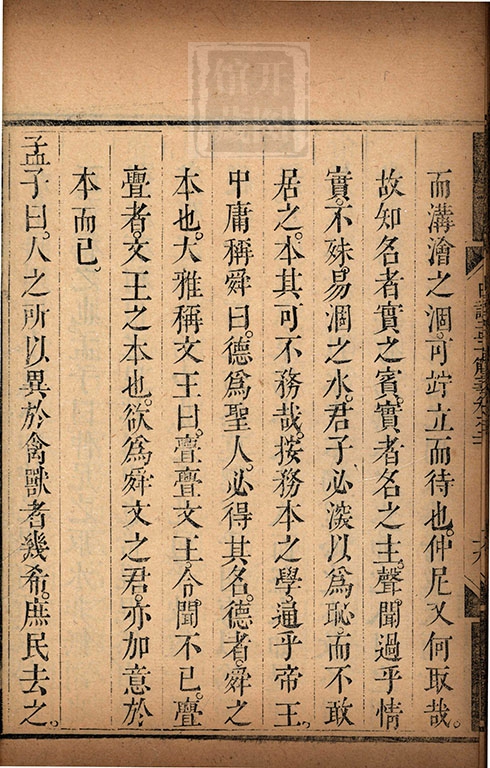 而溝澮之涸。可竚立而待也。仲尼又何取哉。
故知名者實之賓。實者名之主。聲聞過乎情
實。不殊易涸之水。君子必深以為恥。而不敢
居之。本其可不務哉。按務本之學通乎帝王。
中庸稱舜曰。德為聖人。必得其名。德者。舜之
本也。大雅稱文王曰。亹亹文王。令聞不已。亹
亹者。文王之本也。欲為舜文之君。亦加意於
本而已。
孟子曰。人之所以異於禽獸者幾希。庶民去之。